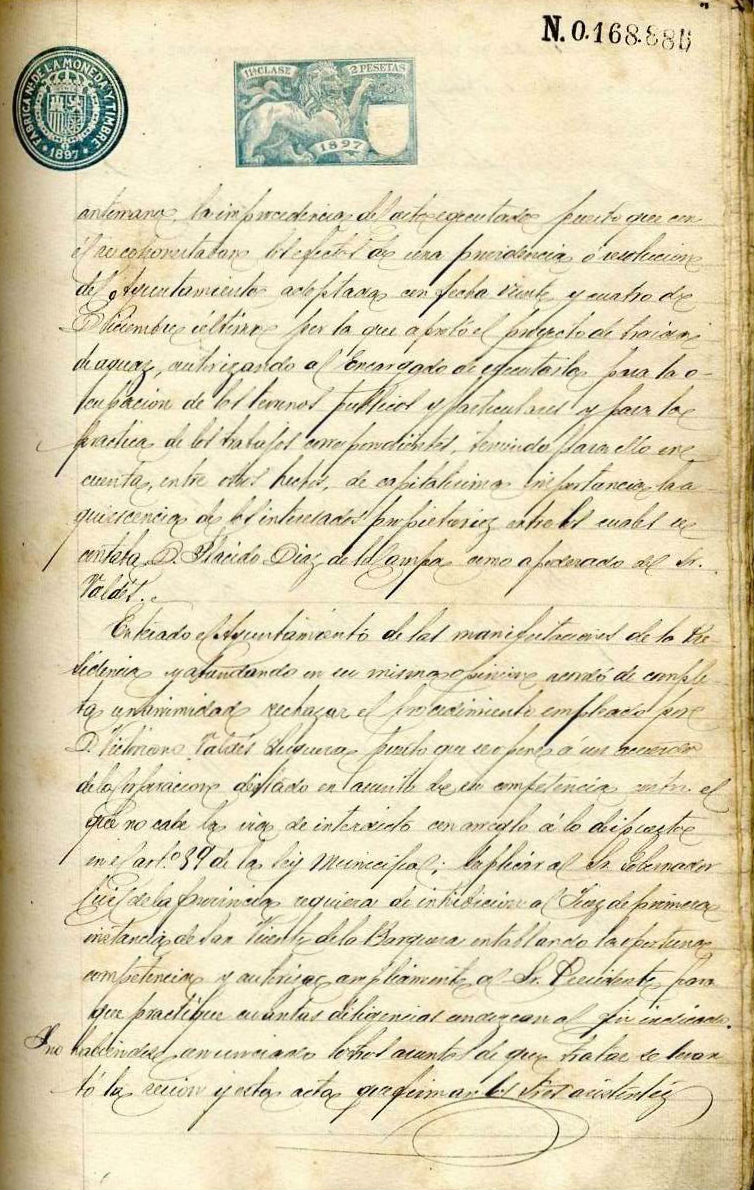 N. 0.168.886
FABRICA NAL DE LA MONEDA Y TIMBRE
* 1897 *
11ª CLASE 2 PESETAS
1897
antemano, la improcedencia del acto ejecutado puesto que con
él se contrarestaban los efectos de una providencia ó resolucion
del Ayuntamiento adoptada con fecha veinte y cuatro de
Diciembre ultimo por la que aprobó el proyecto de traida
de aguas, autorizando al Encargado de ejecutarlo para la o-
cupacion de los terrenos publicos y particulares y para la
practica de los trabajos correspondientes, teniendo para ello en
cuenta, entre otros hechos, de capitalisima importancia la a-
quiescencia de los interesados propietarios entre los cuales se
contaba D. Placido Diaz de la Campa como apoderado del Sr.
Valdés.
Enterado el Ayuntamiento de las manifestaciones de la Pre-
sidencia y abundando en su misma opinion acordó de comple-
ta unanimidad rechazar el procedimiento empleado por
D. Victoriano Valdés puesto que se opone á un acuerdo
de la Corporacion dictado en asunto de su competencia contra el
que no cabe la via de interdicto con arreglo á lo dispuesto
en el art.º 89 de la ley Municipal; suplicar al Sr. Gobernador
Civil de la provincia requiera de inhibicion al Juez de primera
instancia de San Vicente de la Barquera entablando la oportuna
competencia y autorizar ampliamente al Sr. Presidente para
que practique cuantas diligencias conduzcan al fin indicado.
Y no habiendose enunciado otros asuntos de que tratar se levan
tó la sesion y esta acta que firman los Sres asistentes